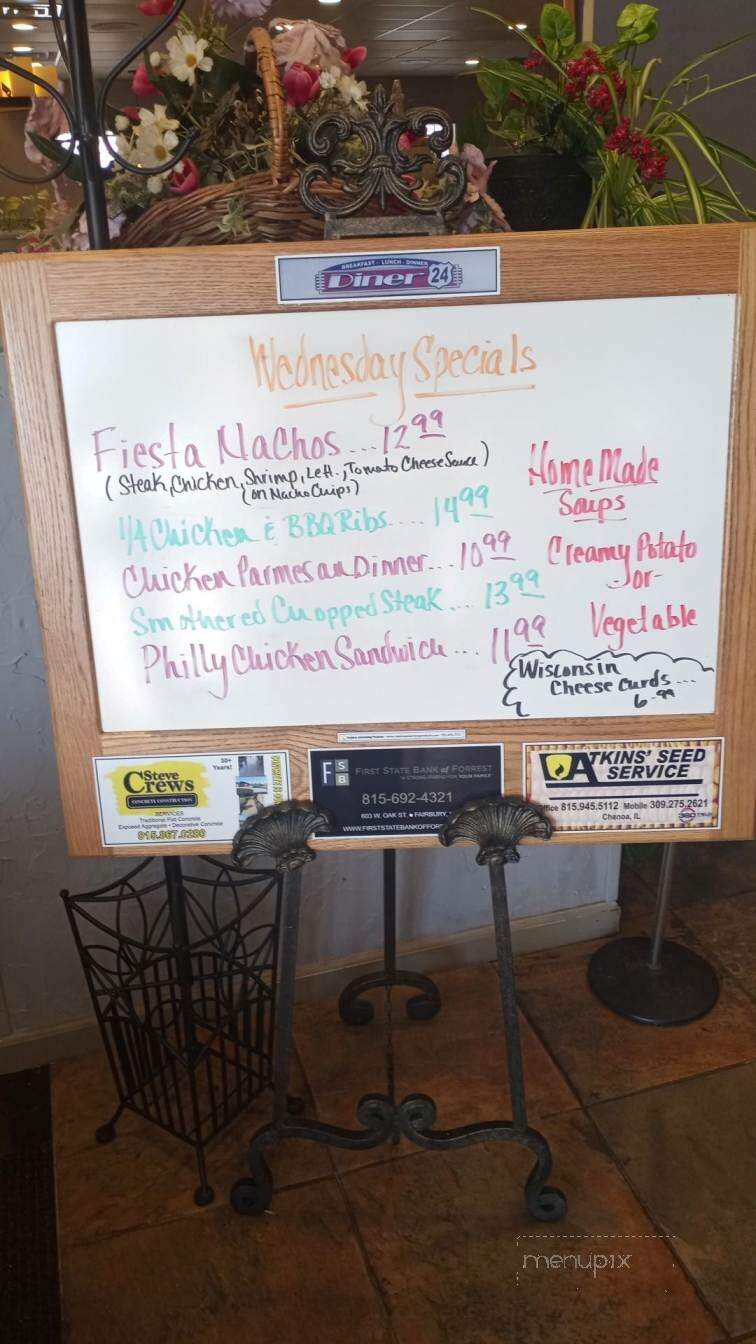 BREAKFAST - LUNCH - DINNER
Diner 24
Wednesday Specials
Fiesta Nachos...12.99
(Steak, Chicken, Shrimp, Lett., Tomato Cheese Sauce)
(on Nacho Chips)
1/4 Chicken & BBQ Ribs.... 14.99
Chicken Parmesan Dinner... 10.99
Smothered Chopped Steak... 13.99
Philly Chicken Sandwich... 11.99
Home Made
Soups
Creamy Potato
-or-
Vegetable
Wisconsin
Cheese Curds...
6.99
30+
Years!
Steve
Crews
CONCRETE CONSTRUCTION
SERVICES
Traditional Flat Concrete
Exposed Aggregate • Decorative Concrete
815.867.0280
FSB
FIRST STATE BANK of FORREST
A STRONG FRIEND FOR YOUR FAMILY
815-692-4321
603 W. OAK ST. • FAIRBURY,
WWW.FIRSTSTATEBANKOFFOR
ATKINS' SEED
SERVICE
Office 815.945.5112 Mobile 309.275.2621
Chenoa, IL
menupix